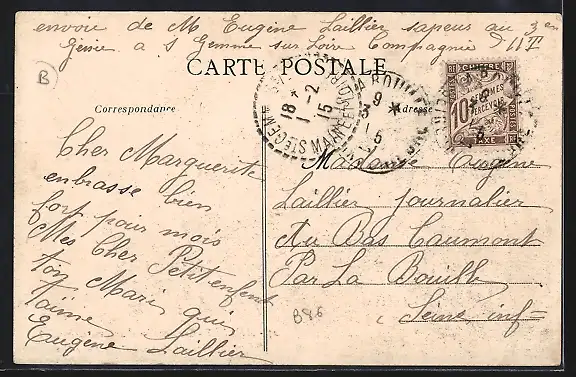 envoie de M Eugène Laillier sapeur au 3em
Génie a S Gemme sur Loire Compagnie D 11/T
CARTE POSTALE
B
Correspondance
Adresse
18 *
1 - 2
15
10 CENTIMES A PERCEVOIR
TAXE
Cher Marguerite
enbrasse bien
fort pour mois
Mes Cher Petit enfent
ton Mari qui
taime
Eugène Laillier
Madame Eugène
Laillier Journalier
Au Bas Caumont
Par La Bouille
Seine inf=
B86